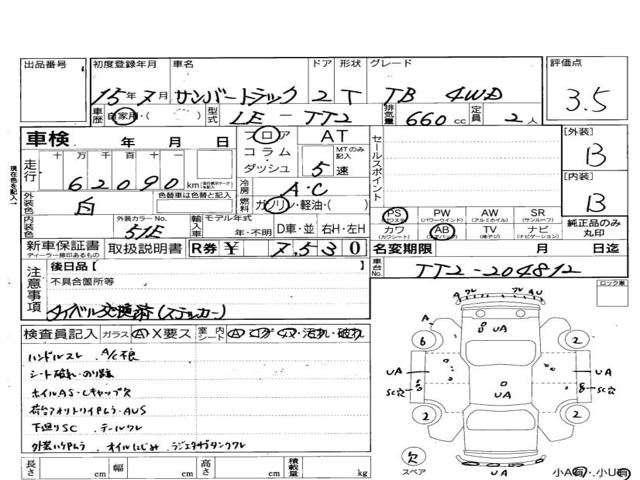 出品番号 初度登録年月 車名 ドア 形状 グレード 評価点
15年7月 サンバートラック 2 T TB 4WD 3.5
車歴 自家用・( ) 型式 LE-TT2 排気量 660cc 定員 2人
車検 年 月 日 フロア コラム・ダッシュ AT MTのみ記入 5速
走行 十万 万 千 百 十 62090 km
冷房 A・C
外装色 白 色替車は色替と記入
燃料 ガソリン・軽油・( )
内装色 外装カラーNo. 51E 輸入車 モデル年式 年・不明 D車・並 右H・左H
セールスポイント
[外装] B
[内装] B
PS PW AW SR
カワ AB TV ナビ
純正品のみ丸印
新車保証書 取扱説明書 R券 ¥ 7,530 名変期限 月 日迄
ディーラー押印あるもの
車台No. TT2-204812
注意事項 後日品[ ]
不具合箇所等
タイバル交換済(ステッカー)
ロック車
検査員記入 ガラス A・X要ス 室内シート
ハンドルスレ A/C不良
シート破れ
ホイルAS・Cキャップ欠
AUS
下廻りSC テールワレ
オイルにじみ
長さ cm 幅 cm 高さ cm 積載量 kg
ワレ AU
UA
A
6 2
UA UA
SC穴 SC穴
UA
2 2
欠
スペア
UA
小A有・小U有